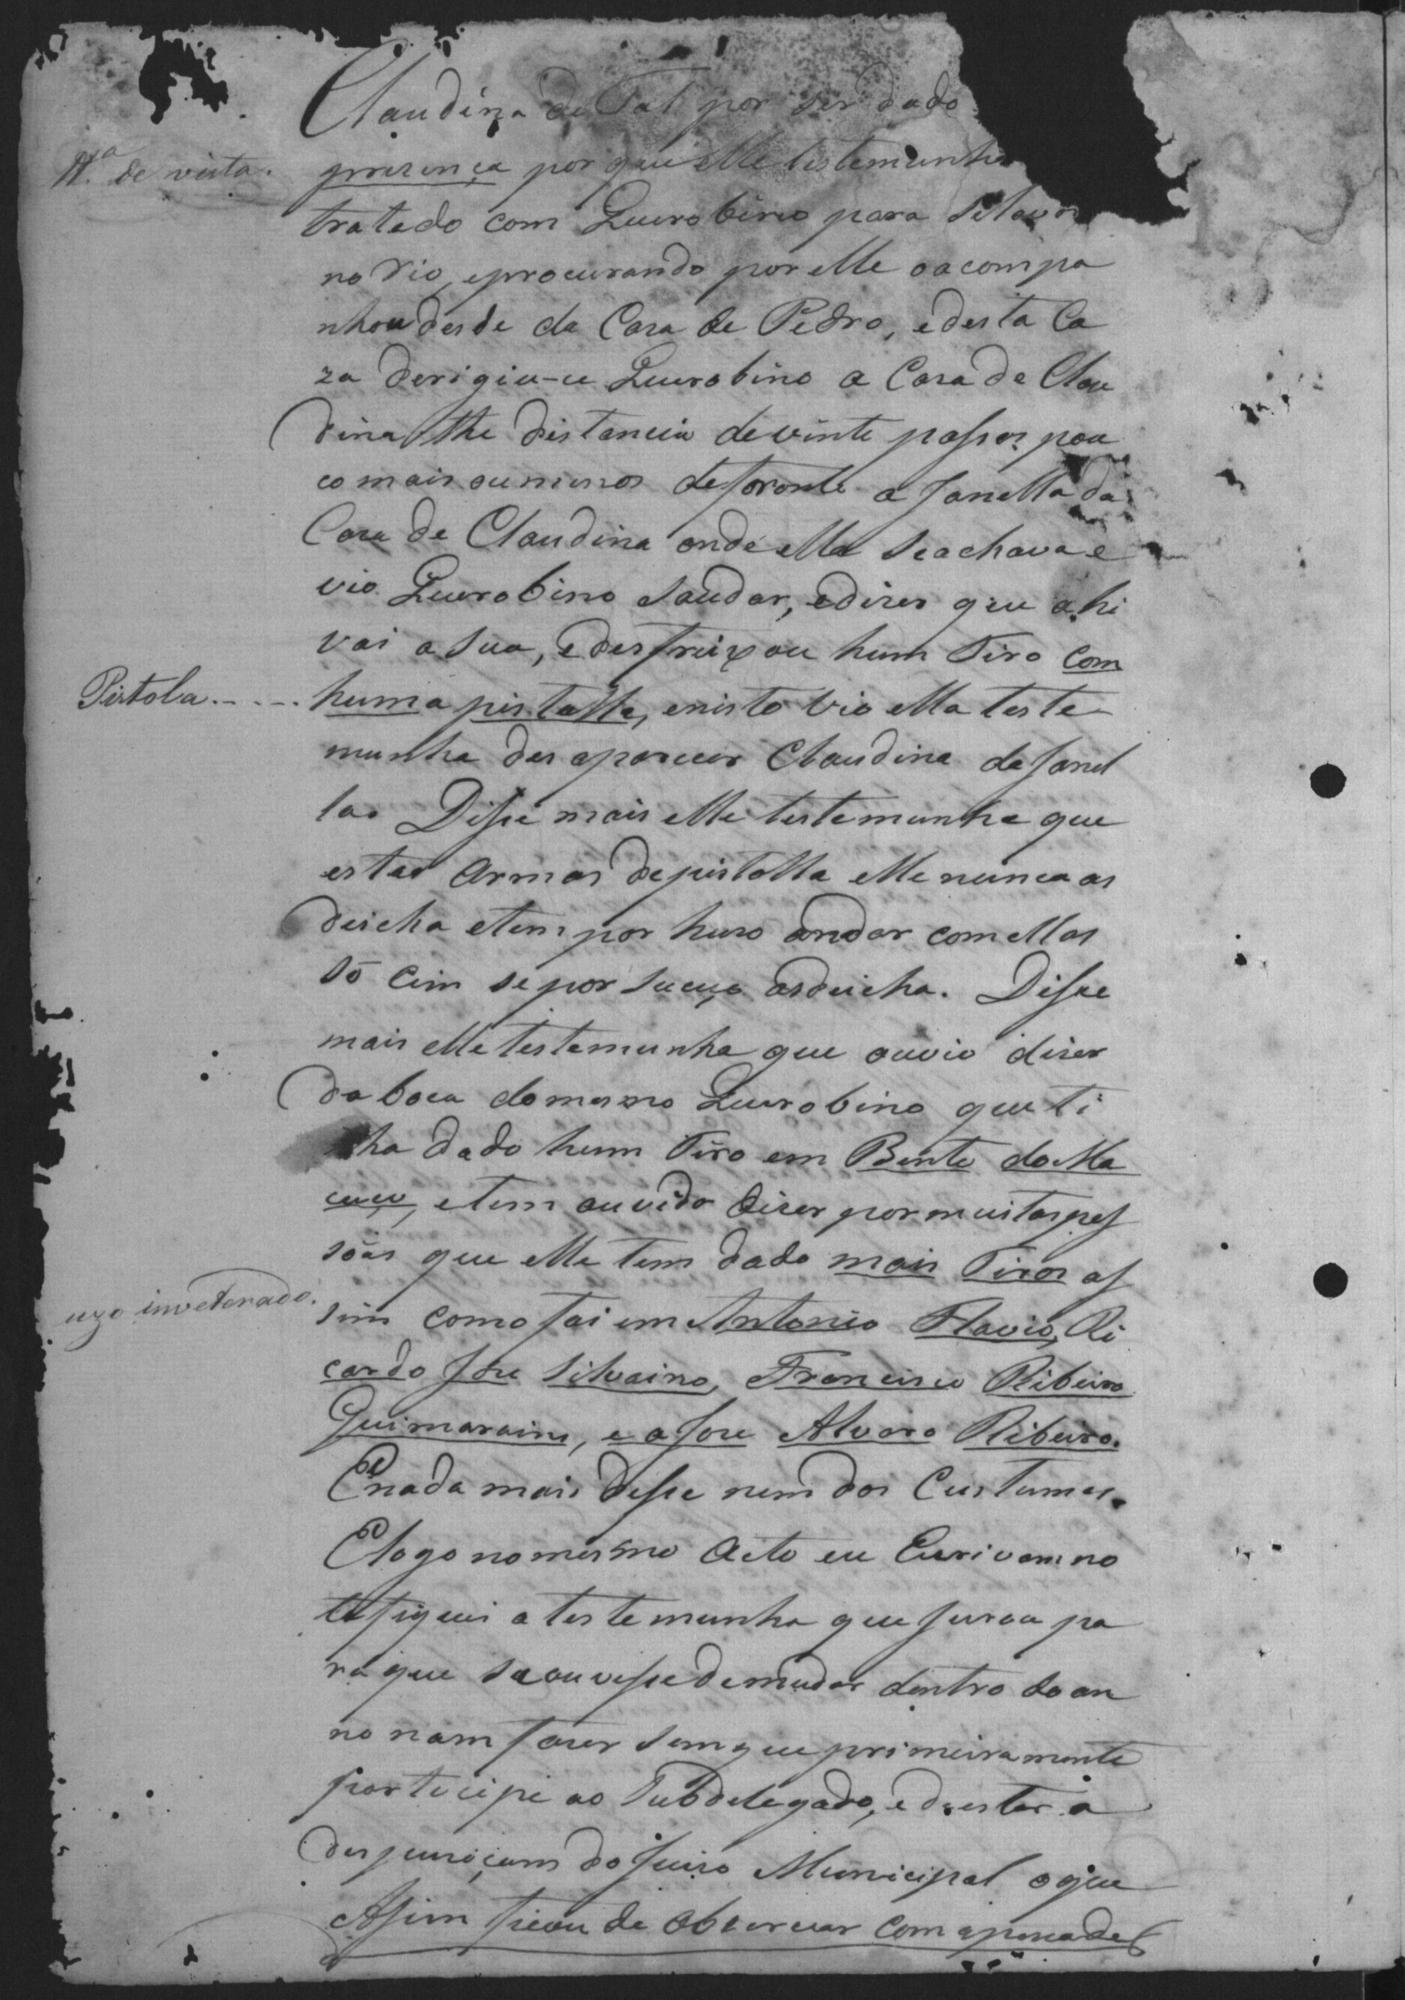 Claudina de Tal por ser dado
tt.ª de vista.
presença por que elle testemunha
tratado com Querobino para
no rio, e procurando por elle o acompa
nhou desde da Casa de Pedro, e desta Ca
za derigiu-se Querobino a Casa de Clau
dina the distancia de vinte passos pou
co mais ou menos defronte a janella da
Casa de Claudina onde ella se achava e
vio Querobino saudar, e dizer que ahi
vai a sua, e desfeixou hum Tiro com
Pistola.----
huma pistolla, e nisto vio ella teste
munha desaparecer Claudina da janel
la. Disse mais elle testemunha que
estas armas de pistolla elle nunca as
deicha e tem por huso andar com ellas
só cim se por as deicha. Disse
mais elle testemunha que ouvio diser
da boca do mesmo Querobino que ti
nha dado hum Tiro em Bento do Ma
cuco, e tem ouvido diser por muitas pes
sôas que elle tem dado mais Tiros as
uzo inveterado.
sim como foi em Antonio Flavio, Ri
cardo Jose Silvaino, Francisco Ribeiro
Guimarains, e a Jose Alvaro Ribeiro.
E nada mais disse nem dos Custumes.
E logo no mesmo Acto eu Escrivam no
tefiquei a testemunha que jurou pa
ra que se ouvesse de mudar dentro do an
no nam faser sem que primeiramente
participe ao Subdelegado, e de estar a
despusiçam do Juiso Municipal o que
Assim ficou de observar com apena de